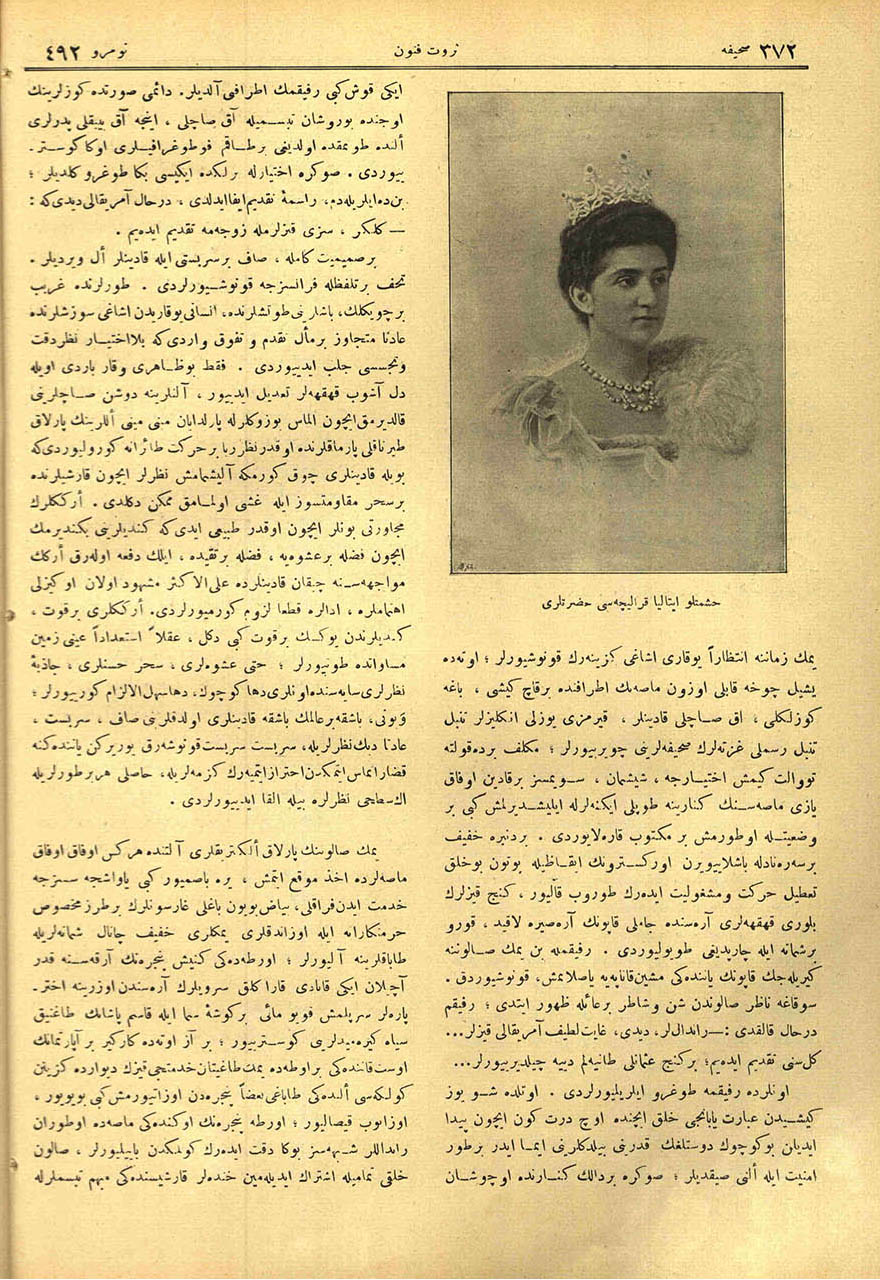 صحیفه ٣٧٢
ثروت فنون
نومرو ٤٩٢
حشمتلو ایتالیا قرالیچه‌سی حضرتلری
یمك زماننه انتظاراً یوقاری اشاغی كزینه‌رك قونوشیورلر ؛ اوته‌ده
یشیل چوخه قابلی اوزون ماصه‌نك اطرافنده برقاچ كیشی ، باغه
كوزلكلی ، آق صاچلی قادینلر ، قیرمزی یوزلی انكلیزلر تنبل
تنبل رسملی غزته‌لرك صحیفه‌لرینی چویریورلر ؛ مكلف برده‌قولته
تووالت كیمش اختیارجه ، شیشمان ، سویمسز برقادین اوفاق
یازی ماصه‌سنك كنارینه طوپلی ایكنه‌لرله ایلیشدیرلمش كبی بر
وضعیتله اوطورمش بر مكتوب قاره‌لایوردی . بردنبره خفیف
برسه‌ره‌نادله باشلاییویرن اوركسترونك ایقاظیله بوتون بوخلق
تعطیل حركت ومشغولیت ایده‌رك طوروب قالیور ، كنج قیزلرك
بلوری قهقهه‌لری آره‌سنده جاملی قاپونك آره‌صیره لاقید ، قورو
برشماته ایله چارپدیغی طویولیوردی . رفیقمله بن یمك صالوننه
كیریله‌جك قاپونك یاننده‌كی مشین‌قاناپه‌یه یاصلانمش، قونوشیوردق .
سوقاغه ناظر صالوندن شن وشاطر برعائله ظهور ایتدی ؛ رفیقم
درحال قالقدی : — راندال‌لر، دیدی، غایت‌لطیف آمریقالی قیزلر...
كل‌سنی تقدیم ایده‌یم؛ بركنج عثمانلی طانیه‌لم دییه چیلدیرییورلر...
اونلرده رفیقمه طوغرو ایلریلیورلردی . اوتلده شو یوز
كیشیدن عبارت یابانجی خلق ایچنده اوچ درت كون ایچون پیدا
ایدیلن بوكوچوك دوستلغك قدرینی بیلدكلرینی ایما ایدر برطور
امنیت ایله ألنی صیقدیلر ؛ صوكره بردالك كنارنده اوچوشان
ایكی قوش‌كبی رفیقمك اطرافی‌آلدیلر. دائمی صورتده كوزلرینك
اوجنده بوروشان تبسمیله آق صاچلی ، اینجه آق بییقلی پدرلری
ألنده طوتمقده اولدیغی برطاقم فوطوغرافیلری اوكا كوستر-
ییوردی . صوكره اختیارله برلكده ایكیسی بكا طوغرو كلدیلر ؛
بن‌ده‌ایلریله‌دم، راسمۀ تقدیم‌ایفاایدلدی ، درحال آمریقالی‌دیدی‌كه :
— كلكز ، سزی قیزلرمله زوجه‌مه تقدیم ایده‌یم .
برصمیمیت كامله ، صاف برسربستی ایله قادینلر أل ویردیلر .
تحف برتلفظله فرانسزجه قونوشیورلردی . طورلرنده غریب
برچویكلك، باشلرینی‌طوتشلرنده، انسانی‌یوقاریدن‌اشاغی سوزشلرنده
عادتا متجاوز برمأل تقدم و تفوق واردی‌كه بلااختیار نظردقت
وتجسسی جلب ایدییوردی . فقط بوظاهری وقار باردی اویله
دل آشوب قهقهه‌لر تعدیل ایدییور ، آلنلرینه دوشن صاچلرینی
قالدیرمق‌ایچون الماس یوزوكلرله پارلدایان مینی مینی أللرینك پارلاق
طیرناقلی پارماقلرنده اوقدر نظرربا برحركت طائرانه كورولیوردی‌كه
بویله قادینلری چوق كورمكه آلیشمامش نظرلر ایچون قارشیلرنده
برسحر مقاومتسوز ایله غشی اولمامق ممكن دكلدی . أرككلرك
مجاورتی بونلر ایچون اوقدر طبیعی ایدی‌كه كندیلرینی بكندیرمك
ایچون فضله برعشوه‌یه ، فضله برتقیده ، ایلك دفعه اوله‌رق أركك
مواجهه‌سنه چیقان قادینلرده علی‌الاكثر مشهود اولان اوكیزلی
اهتماملره ، ادالره قطعا لزوم كورمیورلردی. أرككلری برقوت ،
كندیلرندن یوكسك برقوت كبی دكل ، عقلاً استعداداً عینی زمین
مساواتده طوتیورلر ؛ حتی عشوه‌لری ، سحر حسنلری ، جاذبۀ
نظرلری سایه‌سنده‌اونلری‌دهاكوچوك، دهاسهل‌الالزام كورییورلر ؛
وبونی، باشقه‌برعالمك باشقه قادینلری اولدقلرینی صاف ، سربست ،
عادتا دیك نظرلریله، سربست سربست‌قونوشه‌رق یوریركن یاننده‌كنه
قضارا تماس ایتمكدن‌احترازایتمیه‌رك كزمه‌لریله، حاصلی هربرطورلریله
اك‌سطحی نظرلره بیله القا ایدییورلردی .
یمك صالوننك پارلاق ألكتریقلری آلتنده هركس اوفاق اوفاق
ماصه‌لرده اخذ موقع ایتمش ، یره باصمیور كبی یاواشجه سسزجه
خدمت ایدن‌فراقلی، بیاض‌بویون باغلی غارسونلرك برطرزمخصوص
حرمتكارانه ایله اوزاتدقلری یمكلری خفیف چاتال شماته‌لریله
طاباقلرینه آلیورلر ؛ اورطه‌ده‌كی كنیش پنجره‌نك آرقه‌سنه قدر
آچیلان ایكی قانادی قاراكلق سرویلرك آره‌سندن اوزرینه اختر-
پاره‌لر سرپلمش قویو مائی بركوشۀ سما ایله قاسم پاشانك طاغنیق
سیاه كیره‌میدلرینی كوستریور ؛ بر آز اوته‌ده كارگیر بر آپارتمانك
اوست‌قاتنده‌كی براوطه‌ده یمك‌طاغیتان‌خدمتجی‌قیزك دیوارده كزینن
كولكه‌سی ألنده‌كی طاباغی بعضاً پنجره‌دن اوزاتیورمش‌كبی بویویور ،
اوزانوب قیصالیور ؛ اورطه پنجره‌نك اوكنده‌كی ماصه‌ده اوطوران
راندالل‌لر شبهه‌سز بوكا دقت ایده‌رك كولمكدن باییلیورلر ، صالون
خلقی تمامیله اشتراك ایدیله‌مین خنده‌لر قارشیسنده‌كی مبهم تبسملرله